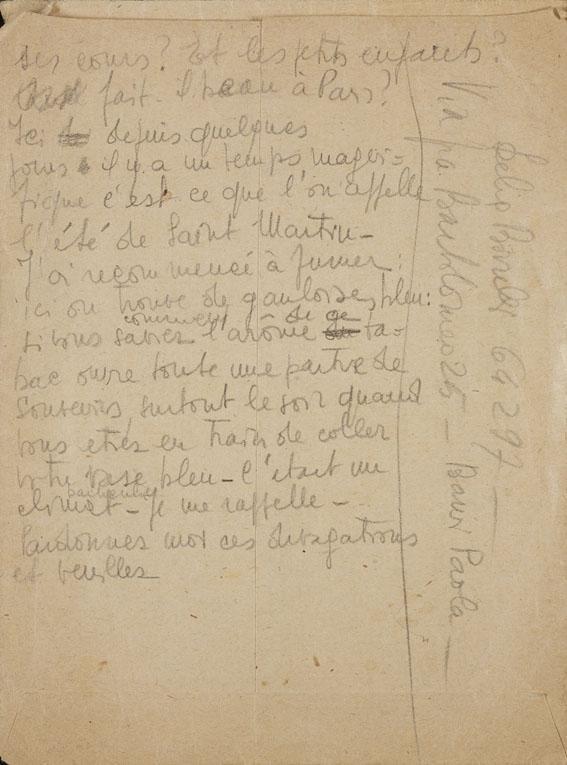 ses cours? Et les petits enfants?
fait-il beau à Paris?
Ici depuis quelques
jours il y a un temps magni-
fique c'est ce que l'on appelle
l'été de Saint Martin -
J'ai recommencé à fumer:
ici on trouve de gauloises bleu:
si vous saviez comment l'arôme de ce ta-
bac ouvre toute une partie de
souvenirs surtout le soir quand
vous etiés en train de coller
votre vase bleu - C'était un
climat particulier - je me rappelle -
Pardonnez moi ces divagations
et veuillez
64297 -
Via fra Bartolomeo 25 - Bauri Paola -